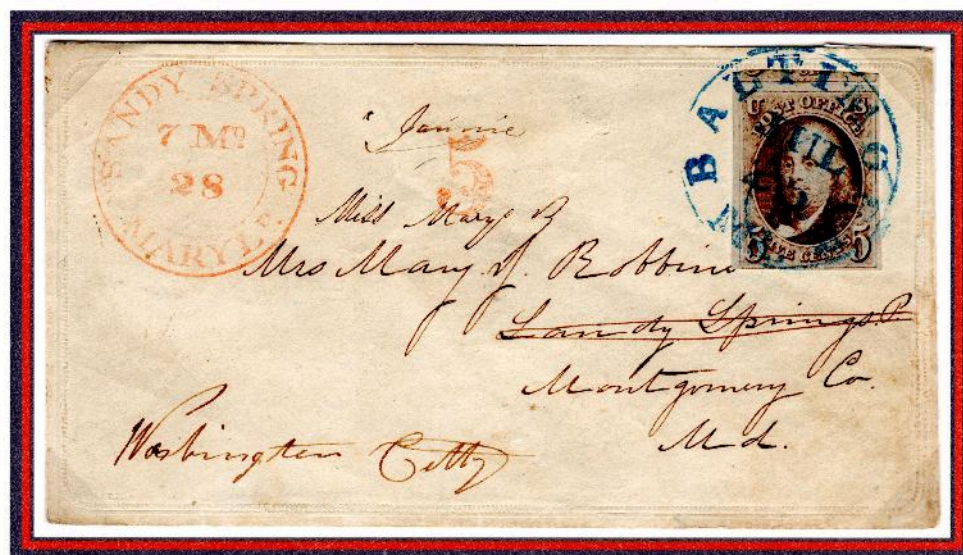 SANDY SPRING
7 Mº
28
MARYLD.
BALTIMO
5
POST OFFICE
FIVE CENTS
5
Jannie
5
Miss Mary
Mrs Mary J. Robbins
Sandy Springs P.
Montgomery Co.
Md.
Washington Citty